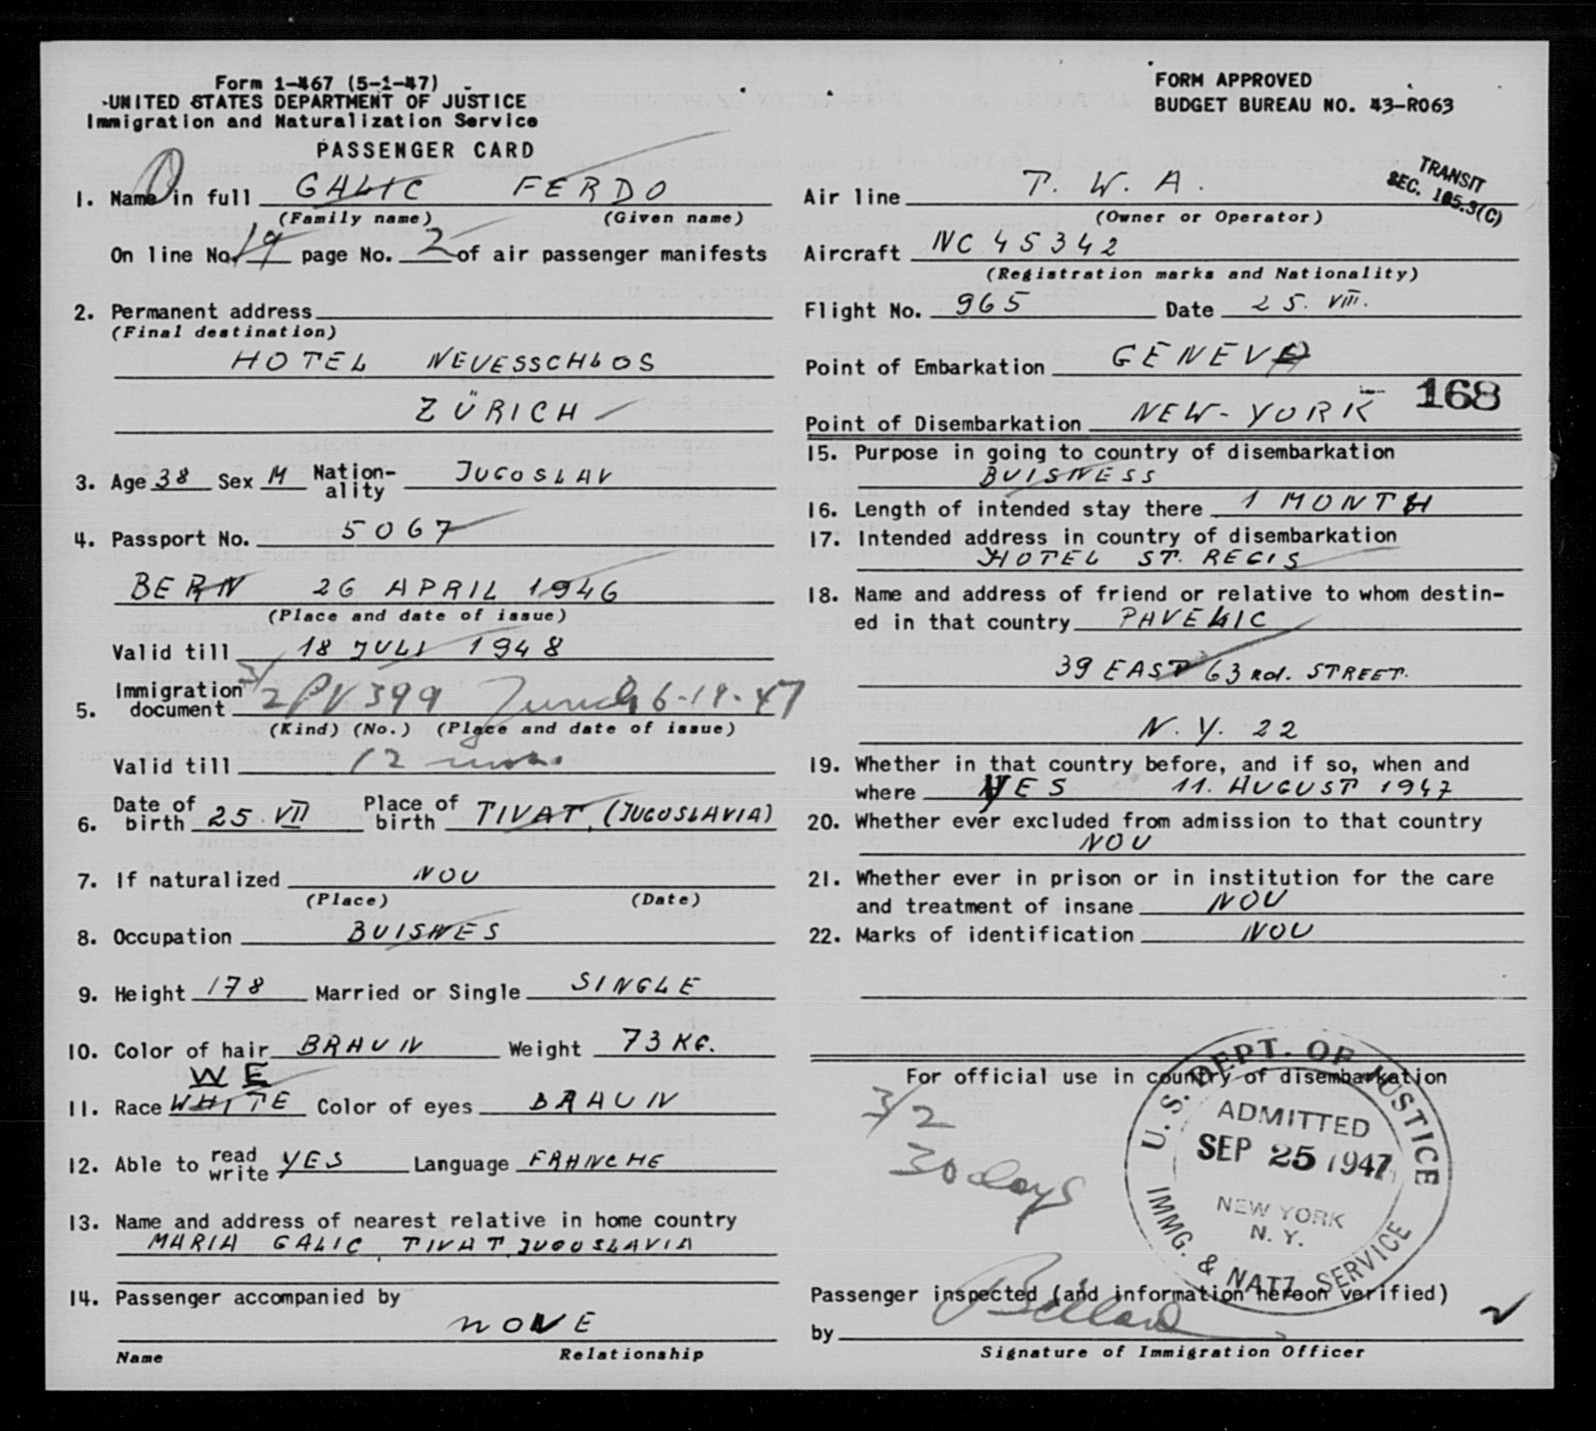 Form I-467 (5-1-47)
UNITED STATES DEPARTMENT OF JUSTICE
Immigration and Naturalization Service
PASSENGER CARD
1. Name in full GALIC FERDO
(Family name) (Given name)
On line No. 19 page No. 2 of air passenger manifests
2. Permanent address
(Final destination)
HOTEL NEUESSCHLOS
ZÜRICH
3. Age 38 Sex M Nation-ality JUGOSLAV
4. Passport No. 5067
BERN 26 APRIL 1946
(Place and date of issue)
Valid till 18 JULI 1948
5. Immigration document 3/2 PV 399 Zurich 6-19-47
(Kind) (No.) (Place and date of issue)
Valid till 12 mos
6. Date of birth 25. VII Place of birth TIVAT, (JUGOSLAVIA)
7. If naturalized NOU
(Place) (Date)
8. Occupation BUISNES
9. Height 178 Married or Single SINGLE
10. Color of hair BRAUN Weight 73 KG.
W E
11. Race WHITE Color of eyes BRAUN
12. Able to read write YES Language FRANCHE
13. Name and address of nearest relative in home country
MARIA GALIC, TIVAT JUGOUSLAVIA
14. Passenger accompanied by
NONE
Name Relationship
FORM APPROVED
BUDGET BUREAU NO. 43-R063
TRANSIT
SEC. 105.3(C)
Air line T. W. A.
(Owner or Operator)
Aircraft NC 45342
(Registration marks and Nationality)
Flight No. 965 Date 25. VIII.
Point of Embarkation GENEVA
168
Point of Disembarkation NEW-YORK
15. Purpose in going to country of disembarkation
BUISNESS
16. Length of intended stay there 1 MONTH
17. Intended address in country of disembarkation
HOTEL ST. REGIS
18. Name and address of friend or relative to whom destin-
ed in that country PAVELIC
39 EAST 63 rd. STREET.
N. Y. 22
19. Whether in that country before, and if so, when and
where YES 11. AUGUST 1947
20. Whether ever excluded from admission to that country
NOU
21. Whether ever in prison or in institution for the care
and treatment of insane NOU
22. Marks of identification NOU
For official use in country of disembarkation
3/2
30 days
U.S. DEPT. OF JUSTICE
ADMITTED
SEP 25 1947
NEW YORK
N. Y.
IMMG. & NATZ. SERVICE
Passenger inspected (and information hereon verified)
by
Signature of Immigration Officer